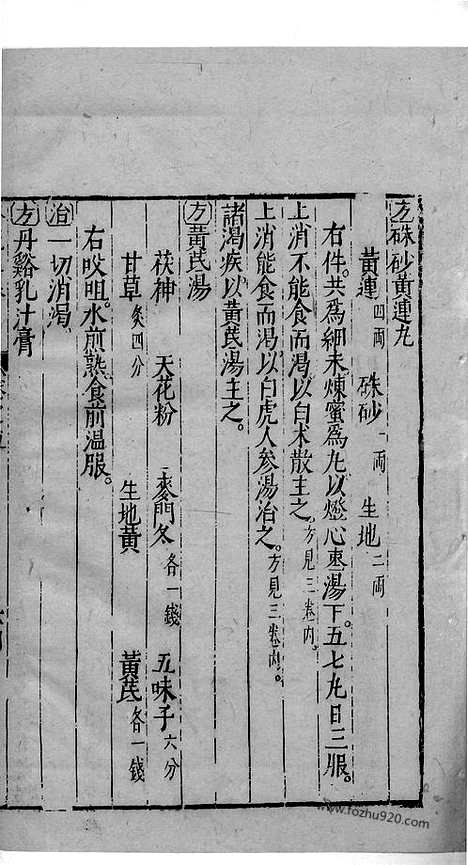 方硃砂黃連九
黃連四兩 硃砂一兩 生地二兩
右件共爲細末煉蜜爲九以燈心棗湯下五七九日三服。
上消不能食而渴以白术散主之。方見三卷内。
上消能食而渴以白虎人參湯治之。方見三卷内。
諸渴疾以黃芪湯主之。
方黃芪湯
茯神 天花粉 麥門冬各一錢 五味子六分
甘草炙四分 生地黃 黃芪各一錢
右㕮咀水煎熟食前溫服。
治一切消渴
方丹谿乳汁膏
www.fozhu920.com